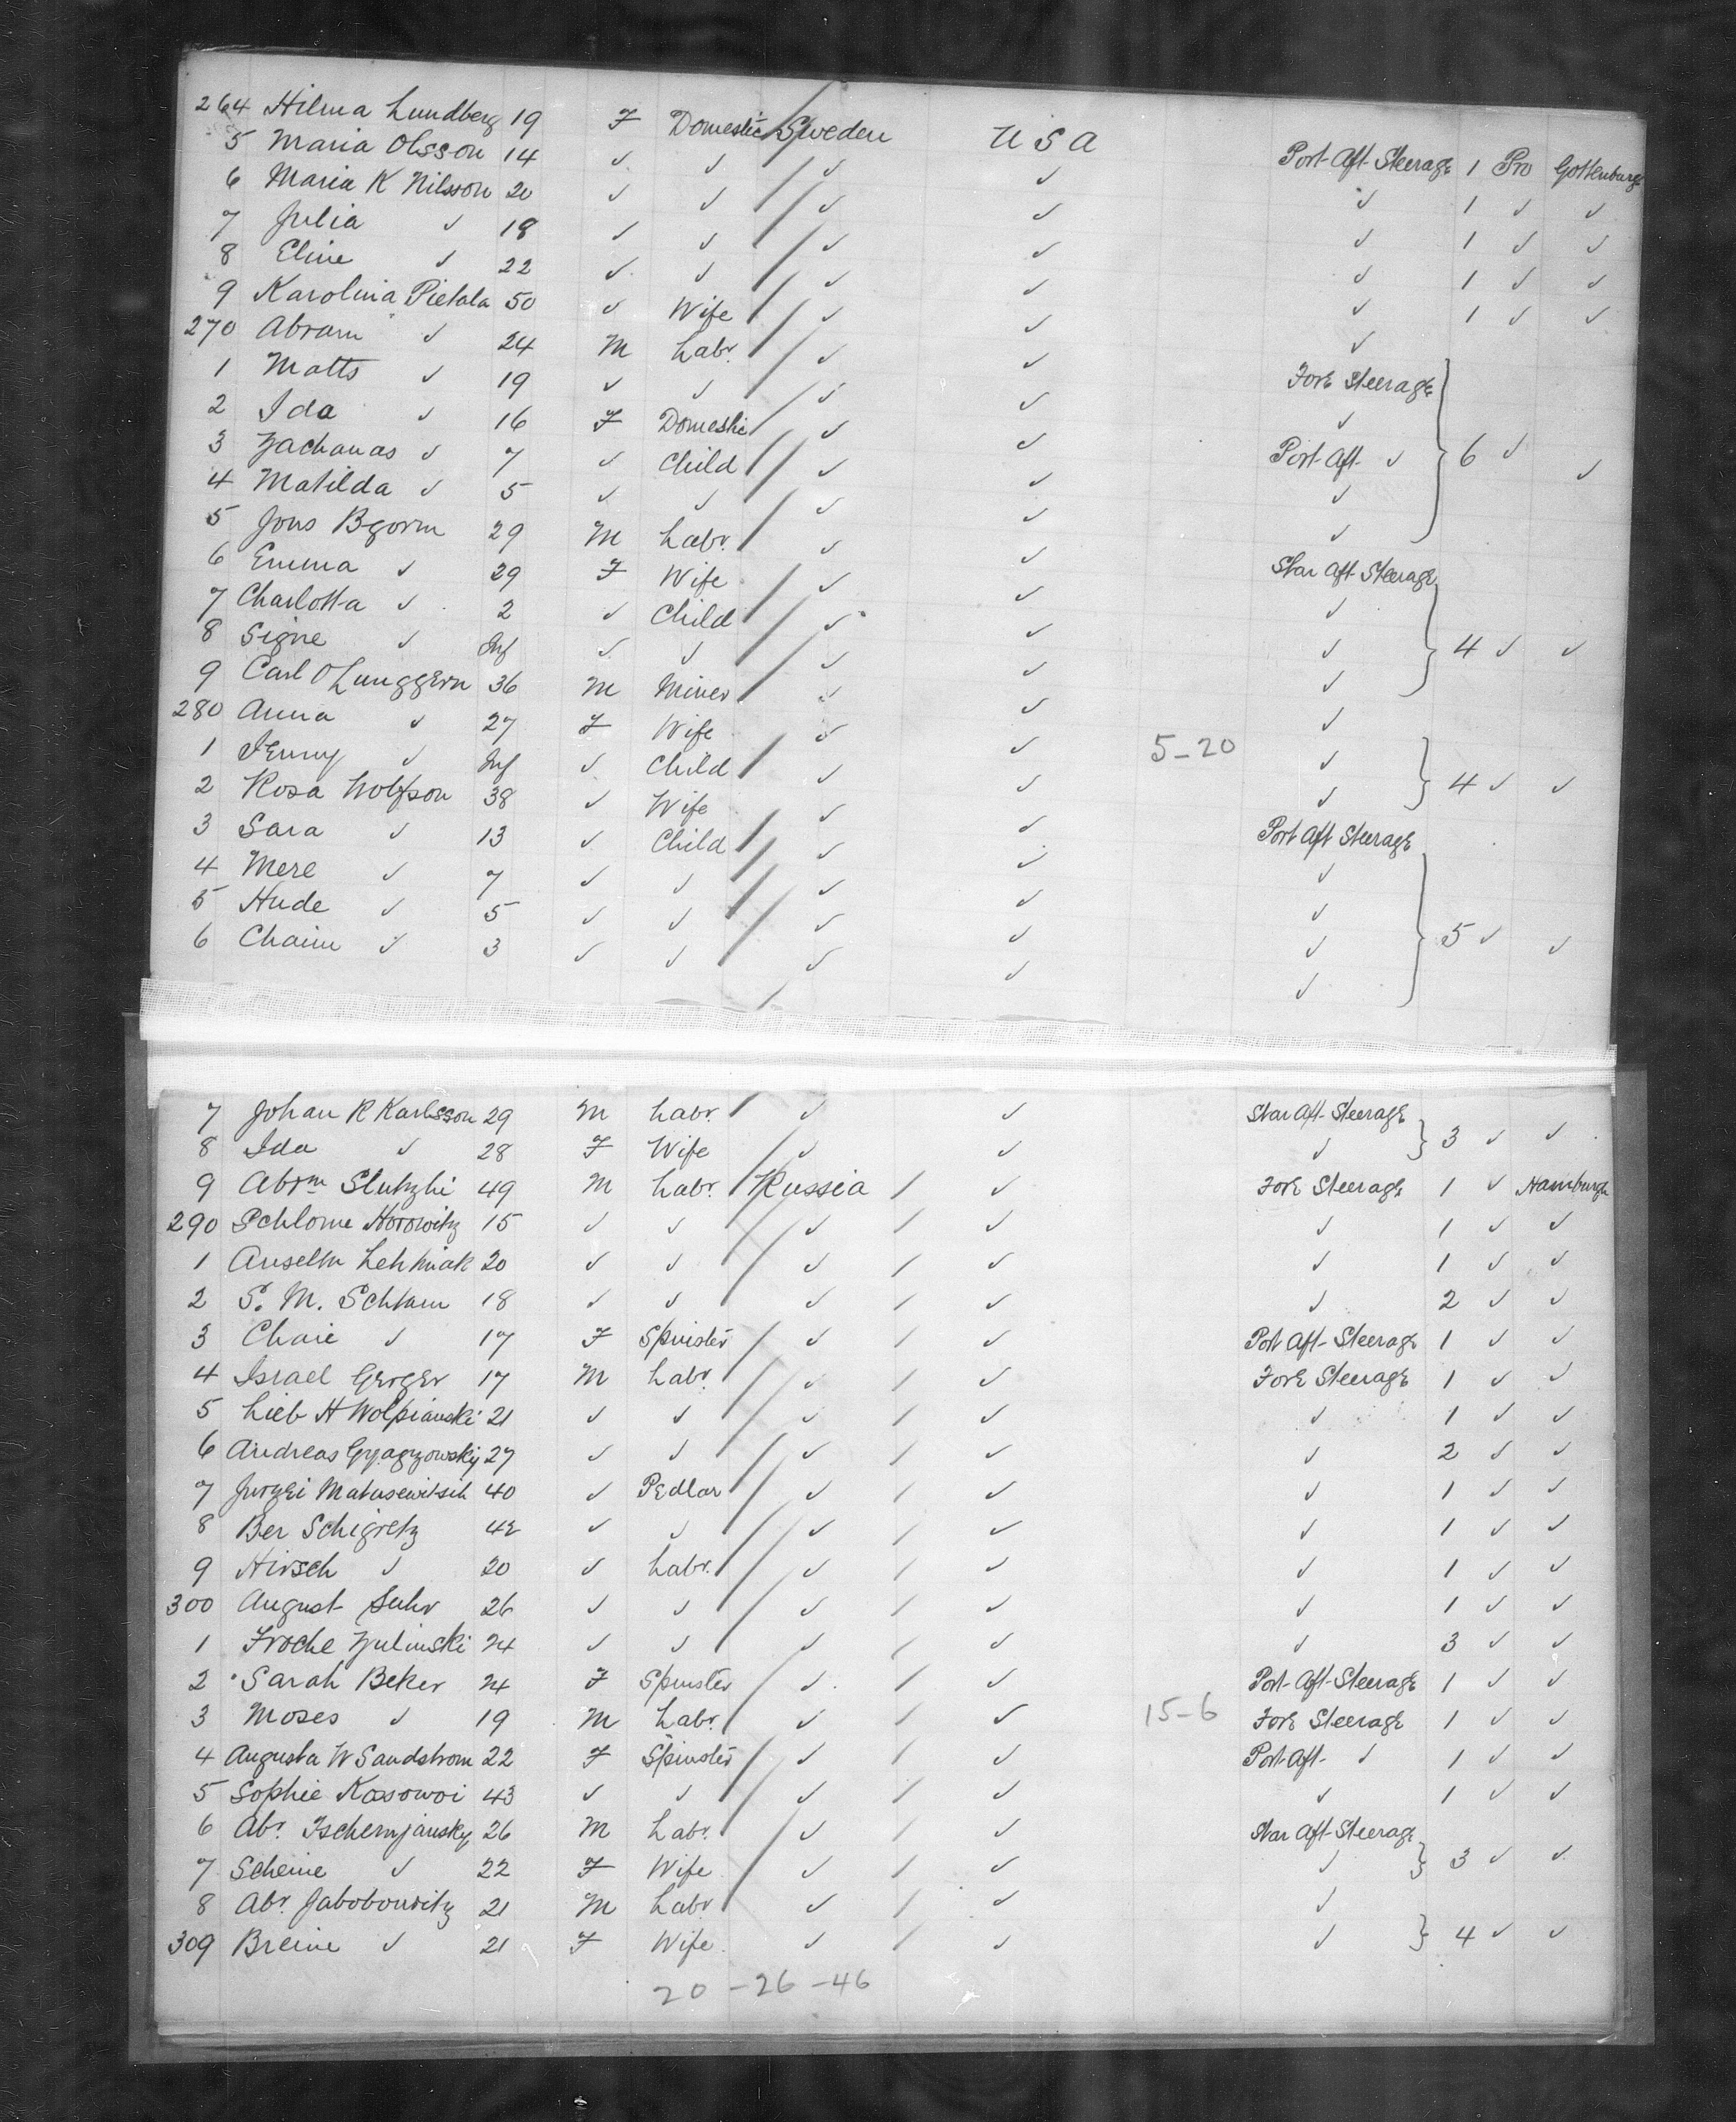 264 Hilma Lundberg 19 F Domestic Sweden U S A Port Aft Steerage 1 Pro Gottenburg
5 Maria Olsson 14 ✓ ✓ ✓ ✓ ✓ 1 ✓ ✓
6 Maria K Nilsson 20 ✓ ✓ ✓ ✓ ✓ 1 ✓ ✓
7 Julia ✓ 18 ✓ ✓ ✓ ✓ ✓ 1 ✓ ✓
8 Eline ✓ 22 ✓ ✓ ✓ ✓ ✓ 1 ✓ ✓
9 Karolina Pietala 50 ✓ Wife ✓ ✓ ✓
270 Abram ✓ 24 M Labr. ✓ ✓ Fore Steerage
1 Matts ✓ 19 ✓ ✓ ✓ ✓ ✓
2 Ida ✓ 16 F Domestic ✓ ✓ Port Aft ✓ 6 ✓ ✓
3 Zacharias ✓ 7 ✓ Child ✓ ✓ ✓
4 Matilda ✓ 5 ✓ ✓ ✓ ✓ ✓
5 Jons Bgorm 29 M Labr. ✓ ✓ Star Aft Steerage
6 Emma ✓ 29 F Wife ✓ ✓ ✓
7 Charlotta ✓ 2 ✓ Child ✓ ✓ ✓ 4 ✓ ✓
8 Signe ✓ Inf ✓ ✓ ✓ ✓ ✓
9 Carl O Lunggern 36 M Miner ✓ ✓ ✓
280 Anna ✓ 27 F Wife ✓ ✓ 5-20 ✓
1 Jenny ✓ Inf ✓ Child ✓ ✓ ✓ 4 ✓ ✓
2 Rosa Wolfson 38 ✓ Wife ✓ ✓ Port Aft Steerage
3 Sara ✓ 13 ✓ Child ✓ ✓ ✓
4 Mere ✓ 7 ✓ ✓ ✓ ✓ ✓
5 Hude ✓ 5 ✓ ✓ ✓ ✓ ✓ 5 ✓ ✓
6 Chaim ✓ 3 ✓ ✓ ✓ ✓ ✓
7 Johan R Karlsson 29 M Labr. ✓ ✓ Star Aft Steerage
8 Ida ✓ 28 F Wife ✓ ✓ ✓ 3 ✓ ✓
9 Abrm Slutzki 49 M Labr. Russia / ✓ Fore Steerage 1 ✓ Hamburgh
290 Schlome Horowitz 15 ✓ ✓ ✓ / ✓ ✓ 1 ✓ ✓
1 Anselm 20 ✓ ✓ ✓ / ✓ ✓ 1 ✓ ✓
2 S. M. Schlam 18 ✓ ✓ ✓ / ✓ ✓ 2 ✓ ✓
3 Chaie ✓ 17 F Spinster ✓ / ✓ Port Aft Steerage 1 ✓ ✓
4 Israel Gerger 17 M Labr. ✓ / ✓ Fore Steerage 1 ✓ ✓
5 Lieb H Wolpianski 21 ✓ ✓ ✓ / ✓ ✓ 1 ✓ ✓
6 Andreas 27 ✓ ✓ ✓ / ✓ ✓ 2 ✓ ✓
7 Jurgei Matusewitsch 40 ✓ Pedlar ✓ / ✓ ✓ 1 ✓ ✓
8 Ber Schigretz 42 ✓ ✓ ✓ / ✓ ✓ 1 ✓ ✓
9 Hirsch ✓ 20 ✓ Labr. ✓ / ✓ ✓ 1 ✓ ✓
300 August Suhr 26 ✓ ✓ ✓ / ✓ ✓ 1 ✓ ✓
1 Froche Zulinski 24 ✓ ✓ ✓ / ✓ ✓ 3 ✓ ✓
2 Sarah Beker 24 F Spinster ✓ / ✓ Port Aft Steerage 1 ✓ ✓
3 Moses ✓ 19 M Labr. ✓ / ✓ 15-6 Fore Steerage 1 ✓ ✓
4 Augusta W Sandstrom 22 F Spinster ✓ / ✓ Port Aft ✓ 1 ✓ ✓
5 Sophie Kosowoi 43 ✓ ✓ ✓ / ✓ ✓ 1 ✓ ✓
6 Abr. Tschernjansky 26 M Labr. ✓ / ✓ Star Aft Steerage
7 Scheine ✓ 22 F Wife ✓ / ✓ ✓ 3 ✓ ✓
8 Abr. Jabobowitz 21 M Labr ✓ / ✓ ✓
309 Breine ✓ 21 F Wife ✓ / ✓ ✓ 4 ✓ ✓
20 - 26 - 46